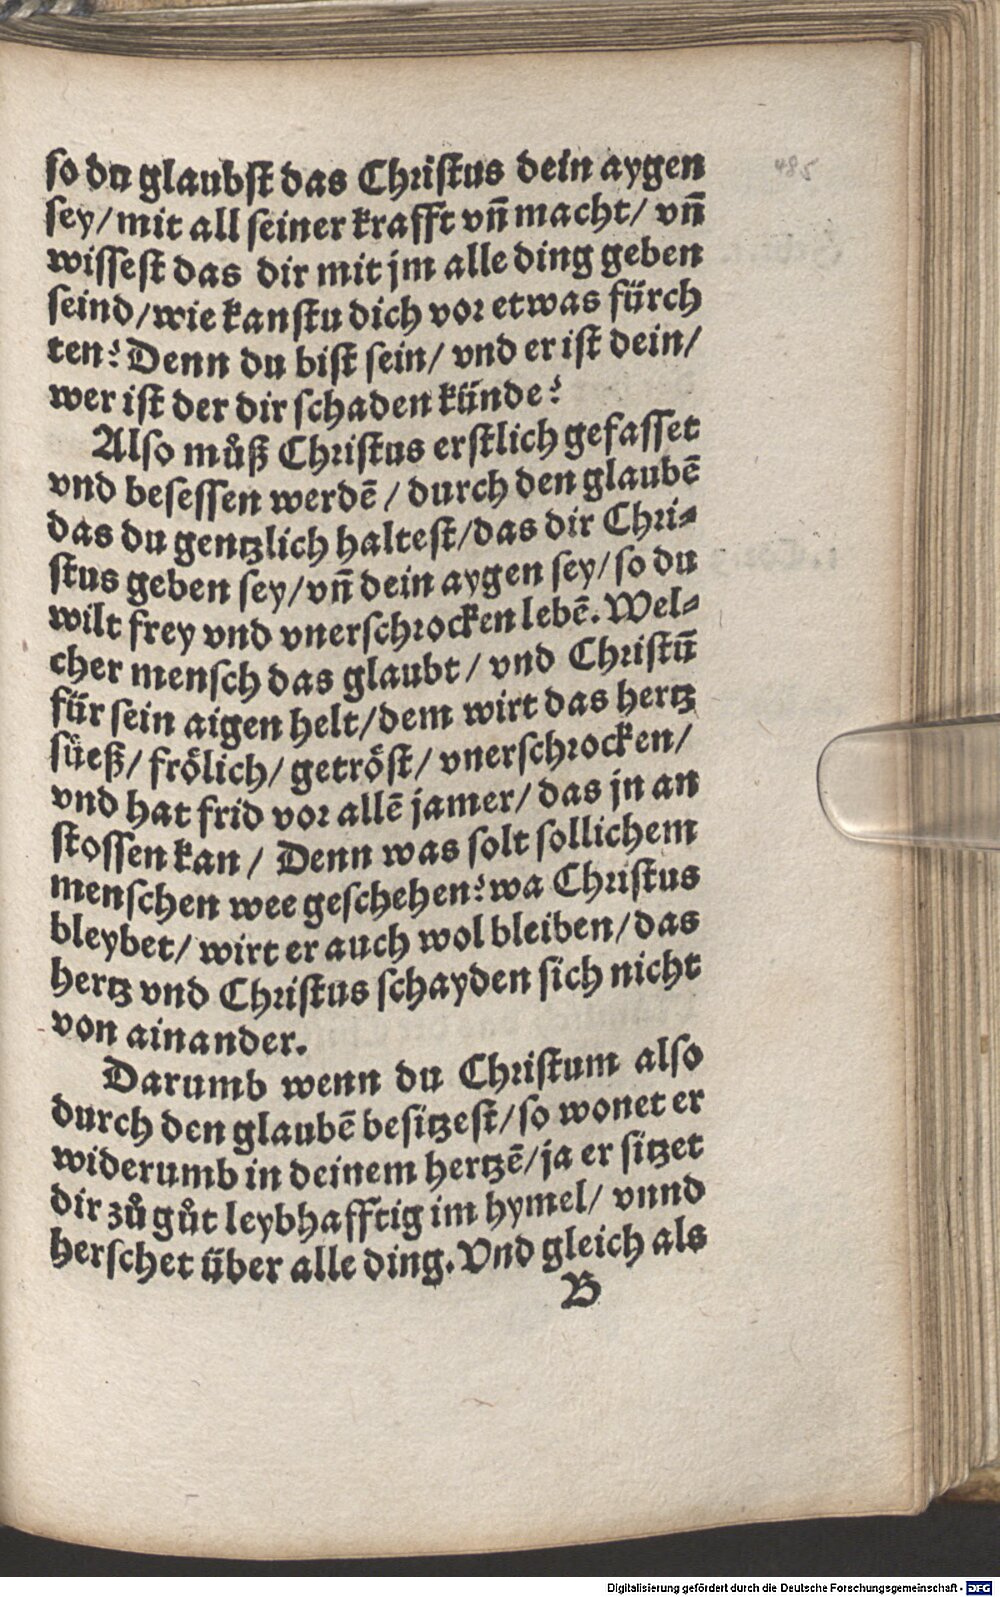 485
so du glaubst das Christus dein aygen
sey/mit all seiner krafft vn̄ macht/ vn̄
wissest das dir mit jm alle ding geben
seind/wie kanstu dich vor etwas fürch
ten? Denn du bist sein/ vnd er ist dein/
wer ist der dir schaden künde?
Also můß Christus erstlich gefasset
vnd besessen werdē / durch den glaubē
das du gentzlich haltest/das dir Chri⸗
stus geben sey/vn̄ dein aygen sey/so du
wilt frey vnd vnerschrocken lebē. Wel⸗
cher mensch das glaubt/ vnd Christū
für sein aigen helt/dem wirt das hertz
süeß/ frölich/ getröst/ vnerschrocken/
vnd hat frid vor allē jamer/ das jn an
stossen kan/ Denn was solt sollichem
menschen wee geschehen? wa Christus
bleybet/ wirt er auch wol bleiben/das
hertz vnd Christus schayden sich nicht
von ainander.
Darumb wenn du Christum also
durch den glaubē besitzest/so wonet er
widerumb in deinem hertzē/ja er sitzet
dir zů gůt leybhafftig im hymel/ vnnd
herschet über alle ding. Vnd gleich als
B
Digitalisierung gefördert durch die Deutsche Forschungsgemeinschaft - DFG